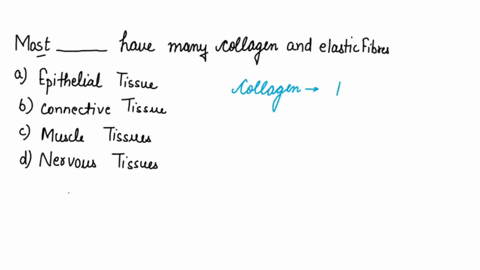 Most ______ have many collagen and elastic Fibres
a) Epithelial Tissue
b) Connective Tissue
c) Muscle Tissues
d) Nervous Tissues
Collagen → |